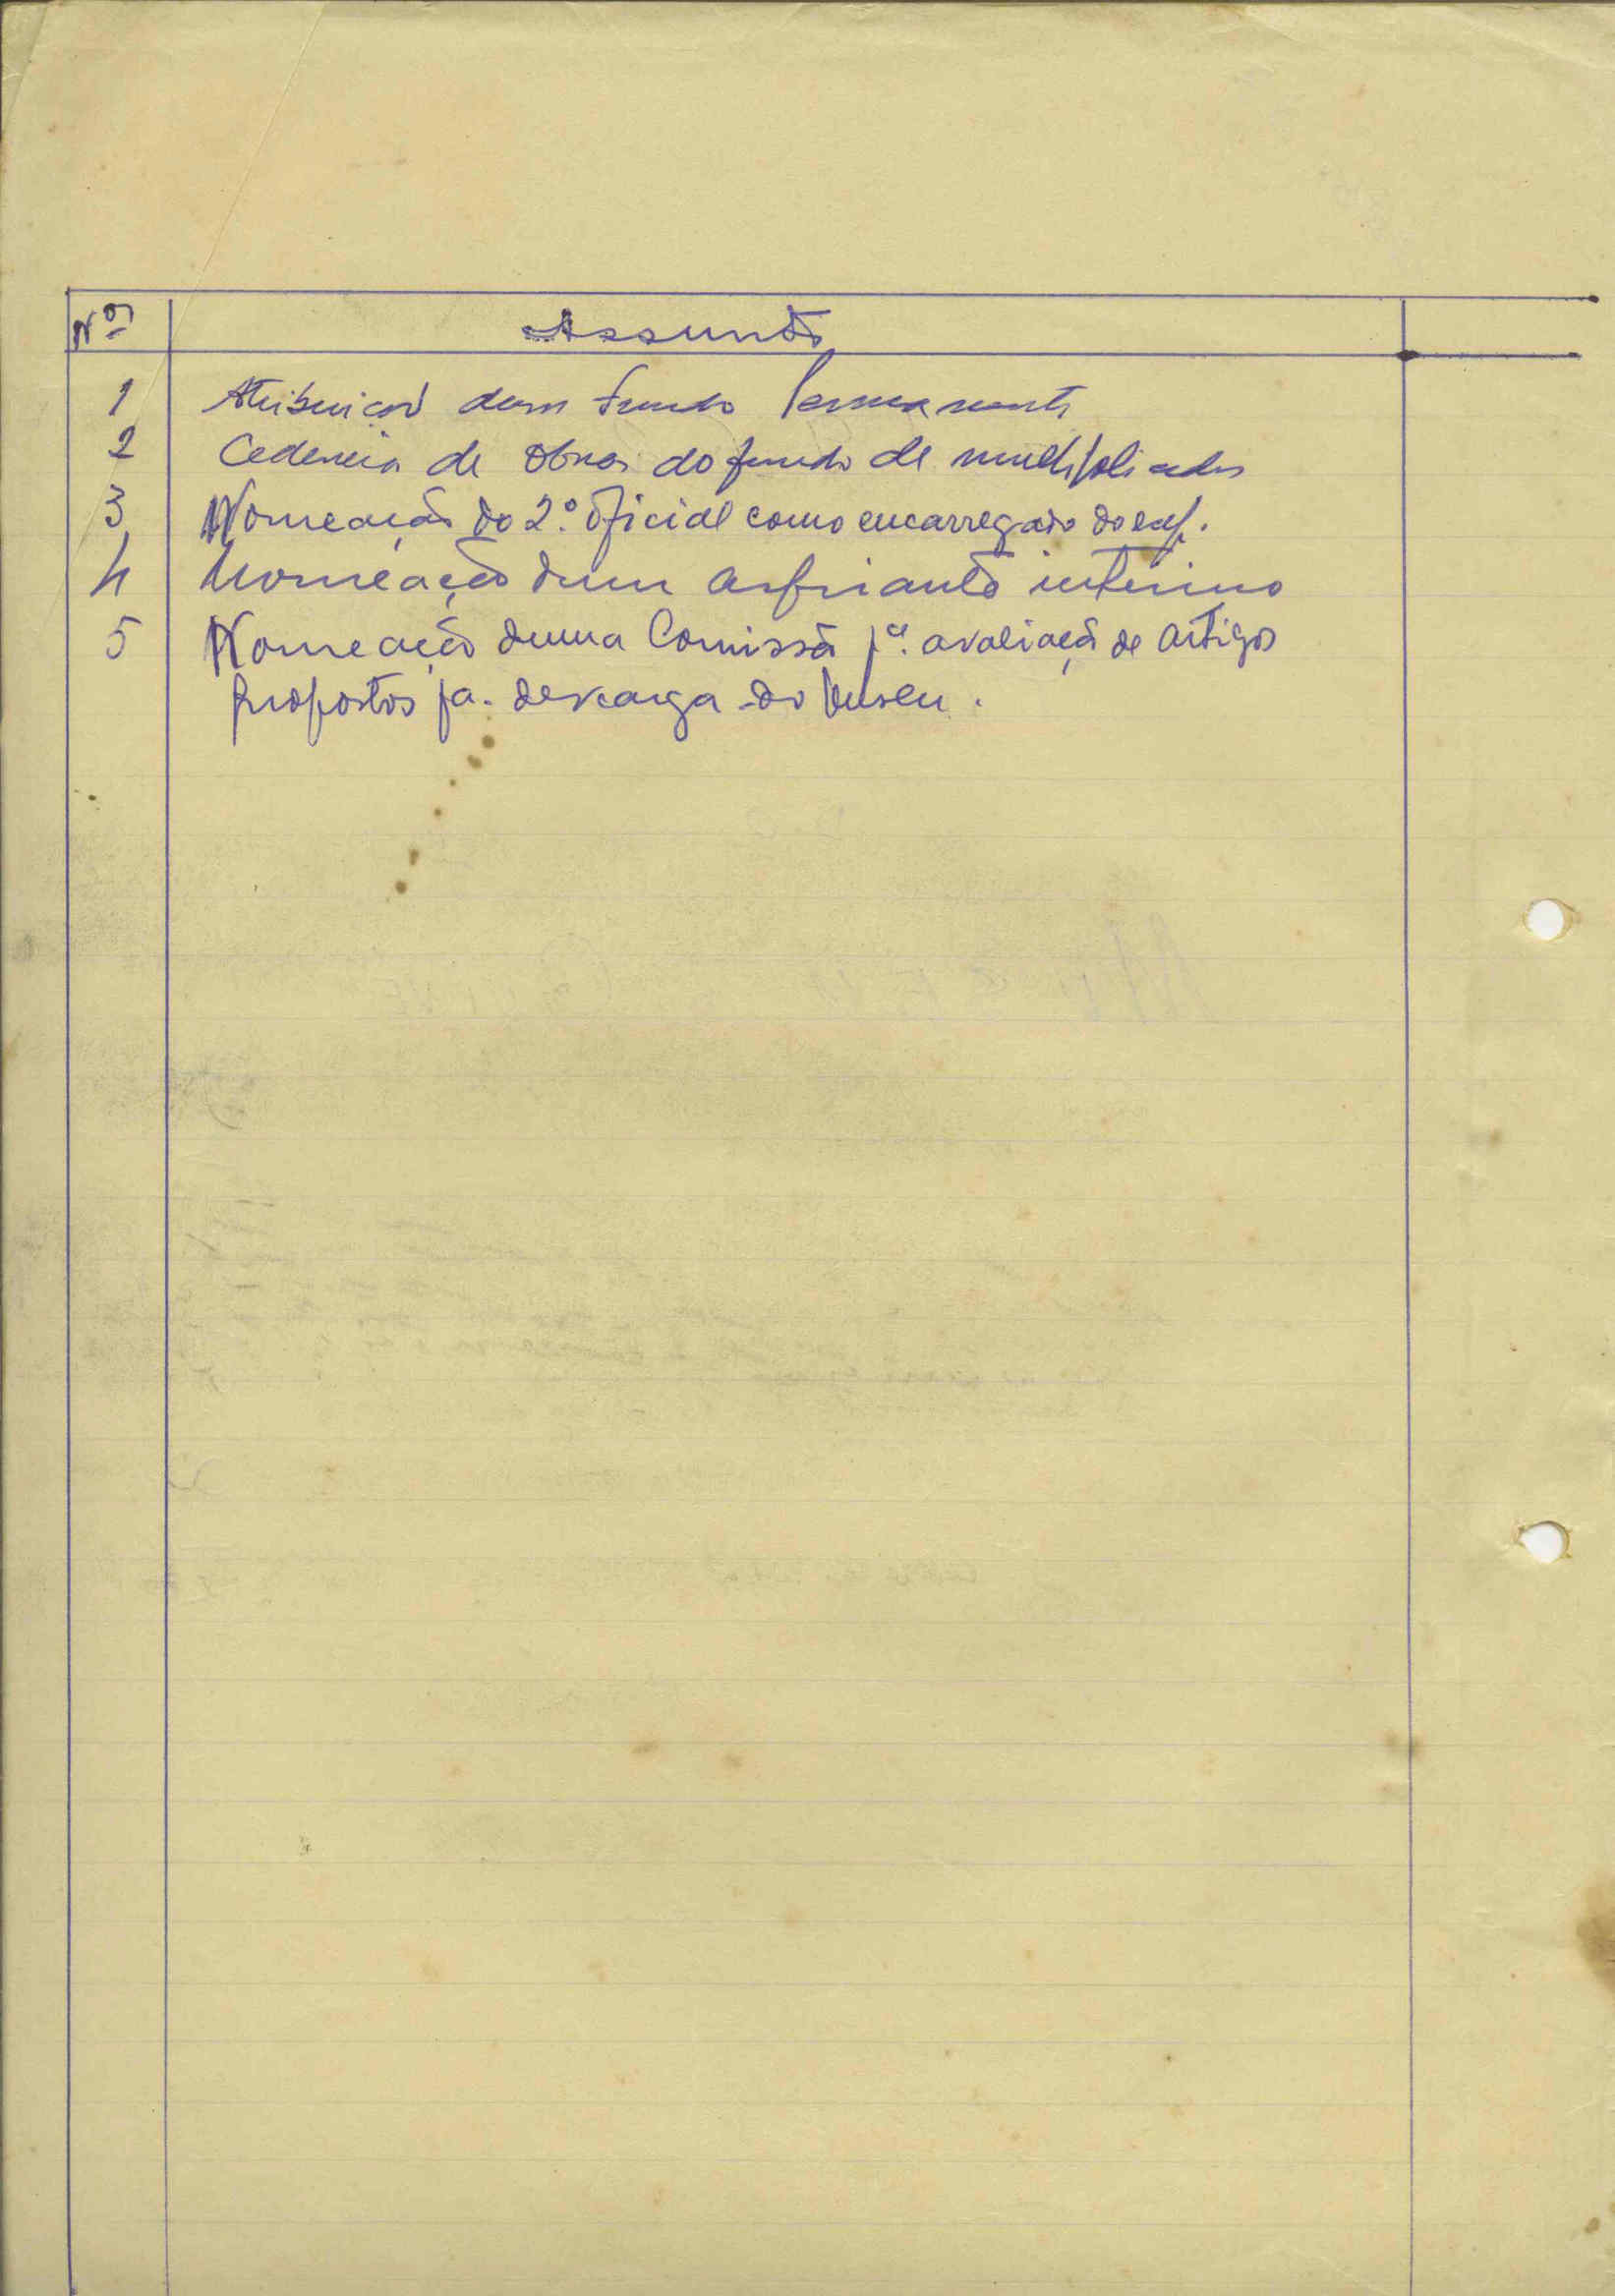 Nos Assunto
1 Atribuição dum fundo Permanente
2 Cedencia de obras do fundo de multiplicados
3 Nomeação do 2º. Oficial como encarregado do exp.
4 Nomeação dum aspirante interino
5 Nomeação duma Comissão pª. avaliação de artigos
propostos pa. descarga do Museu.